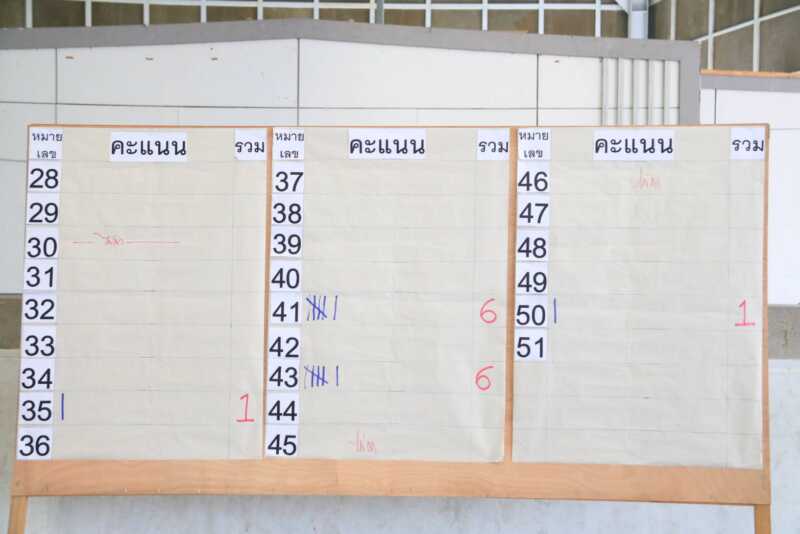 หมายเลข คะแนน รวม
28
29
30
31
32
33
34
35 | 1
36
หมายเลข คะแนน รวม
37
38
39
40
41 |||| | 6
42
43 |||| | 6
44
45
หมายเลข คะแนน รวม
46
47
48
49
50 | 1
51